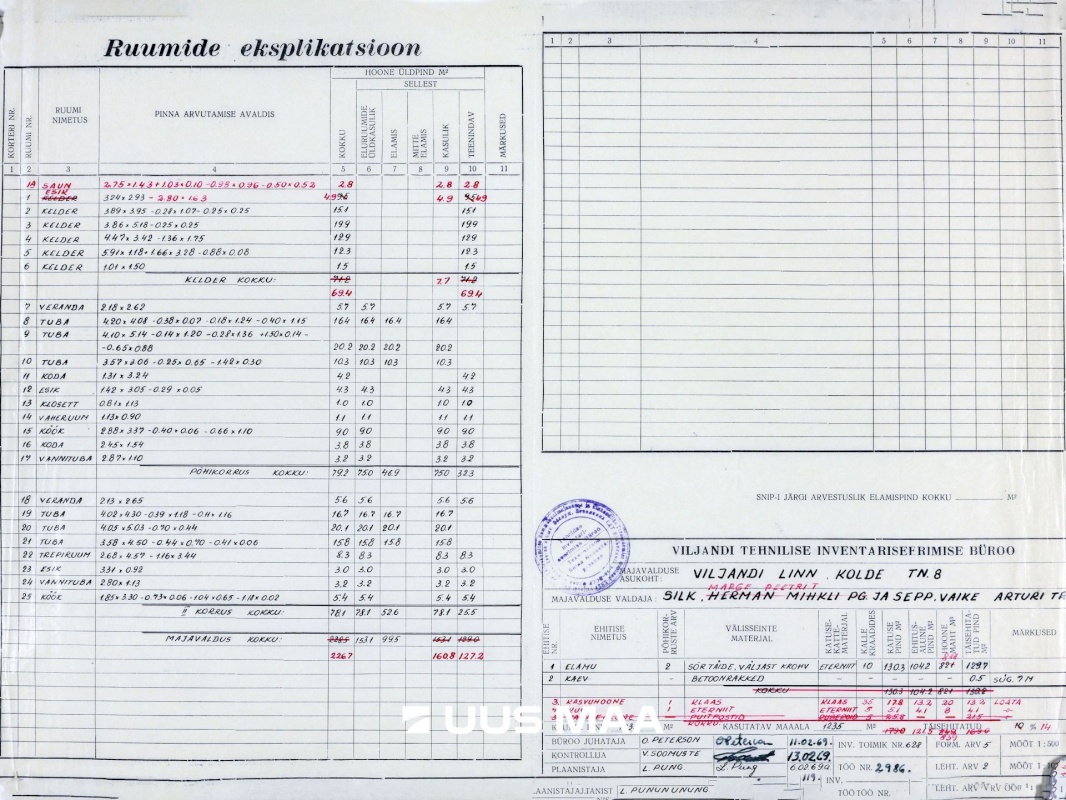 Ruumide eksplikatsioon
HOONE ÜLDPIND M²
SELLEST
KORTERI NR.
RUUMI NR.
RUUMI NIMETUS
PINNA ARVUTAMISE AVALDIS
KOKKU
ELURUUMIDE ÜLDKASULIK
ELAMIS
MITTE ELAMIS
KASULIK
TEENINDAV
MÄRKUSED
1 2 3 4 5 6 7 8 9 10 11
1a SAUN 2.75×1.43+1.03×0.10-0.95×0.96-0.50×0.52 2.8 2.8 2.8
1 ESIK KELDER 3.24×2.93-2.80×1.63 4.9 4.9 4.9
2 KELDER 3.89×3.95-0.28×1.07-0.25×0.25 15.1 15.1
3 KELDER 3.86×5.18-0.25×0.25 19.9 19.9
4 KELDER 4.47×3.42-1.36×1.75 12.9 12.9
5 KELDER 5.91×1.18+1.66×3.28-0.88×0.08 12.3 12.3
6 KELDER 1.01×1.50 1.5 1.5
KELDER KOKKU: 71.2 7.7 71.2
69.4 69.4
7 VERANDA 2.18×2.62 5.7 5.7 5.7 5.7
8 TUBA 4.20×4.08-0.38×0.07-0.18×1.24-0.40×1.15 16.4 16.4 16.4 16.4
9 TUBA 4.10×5.14-0.14×1.20-0.28×1.36+1.50×0.14-
-0.65×0.88 20.2 20.2 20.2 20.2
10 TUBA 3.57×3.06-0.25×0.65-1.42×0.30 10.3 10.3 10.3 10.3
11 KODA 1.31×3.24 4.2 4.2
12 ESIK 1.42×3.05-0.29×0.05 4.3 4.3 4.3 4.3
13 KLOSETT 0.81×1.13 1.0 1.0 1.0 1.0
14 VAHERUUM 1.13×0.90 1.1 1.1 1.1 1.1
15 KÖÖK 2.88×3.37-0.40×0.06-0.66×1.10 9.0 9.0 9.0 9.0
16 KODA 2.45×1.54 3.8 3.8 3.8 3.8
17 VANNITUBA 2.87×1.10 3.2 3.2 3.2 3.2
PÕHIKORRUS KOKKU: 79.2 75.0 46.9 75.0 32.3
18 VERANDA 2.13×2.65 5.6 5.6 5.6 5.6
19 TUBA 4.02×4.30-0.39×1.18-0.11×1.16 16.7 16.7 16.7 16.7
20 TUBA 4.05×5.03-0.70×0.44 20.1 20.1 20.1 20.1
21 TUBA 3.58×4.50-0.44×0.70-0.41×0.06 15.8 15.8 15.8 15.8
22 TREPIRUUM 2.68×4.57-1.16×3.44 8.3 8.3 8.3 8.3
23 ESIK 3.31×0.92 3.0 3.0 3.0 3.0
24 VANNITUBA 2.80×1.13 3.2 3.2 3.2 3.2
25 KÖÖK 1.85×3.30-0.73×0.06-1.04×0.65-1.18×0.02 5.4 5.4 5.4 5.4
II KORRUS KOKKU: 78.1 78.1 52.6 78.1 25.5
MAJAVALDUS KOKKU: 228.5 153.1 99.5 153.1 129.0
226.7 160.8 127.2
1 2 3 4 5 6 7 8 9 10 11
SNIP-I JÄRGI ARVESTUSLIK ELAMISPIND KOKKU M²
VILJANDI TEHNILISE INVENTARISEERIMISE BÜROO
MAJAVALDUSE ASUKOHT: VILJANDI LINN, KOLDE TN. 8
MARGE PEETRIT
MAJAVALDUSE VALDAJA: SILK, HERMAN MIHKLI PG. JA SEPP, VAIKE ARTURI TR
EHITISE NR.
EHITISE NIMETUS
PÕHIKORRUSTE ARV
VÄLISSEINTE MATERJAL
KATUSEKATTE MATERJAL
KALLE KRAADIDES
KATUSE PIND M²
EHITUSALUNE PIND M²
HOONE MAHT M³
TÄISEHITATUD PIND M²
MÄRKUSED
1 ELAMU 2 SÕRTÄIDE, VÄLJAST KROHV ETERNIIT 10 130.3 104.2 821 129.7
2 KAEV - BETOONRAKKED - - - - - 0.5 SÜG. 7 M
KOKKU 130.3 104.2 821 130.2
3. KASVUHOONE 1 KLAAS KLAAS 35 17.8 13.2 20 13.2
ETERNIIT ETERNIIT 5 5.1 4.1 8 4.1
PUITPOSTID
UUS MAA
KASUTATAV MAAALA 1235 M² TÄISEHITATUD 10 % 14
BÜROO JUHATAJA O. PETERSON 11.02.69. INV. TOIMIK NR. 628 FORM. ARV 5 MÕÕT 1:500
KONTROLLIJA V. SOOMUSTE 13.02.69.
PLAANISTAJA L. PUNG L. Pung 6.02.69.a TÖÖ NR. 2986. LEHT. ARV 2 MÕÕT 1:
INV.
L. PUNUNUNUNG.
TÖÖ TÖÖ NR.